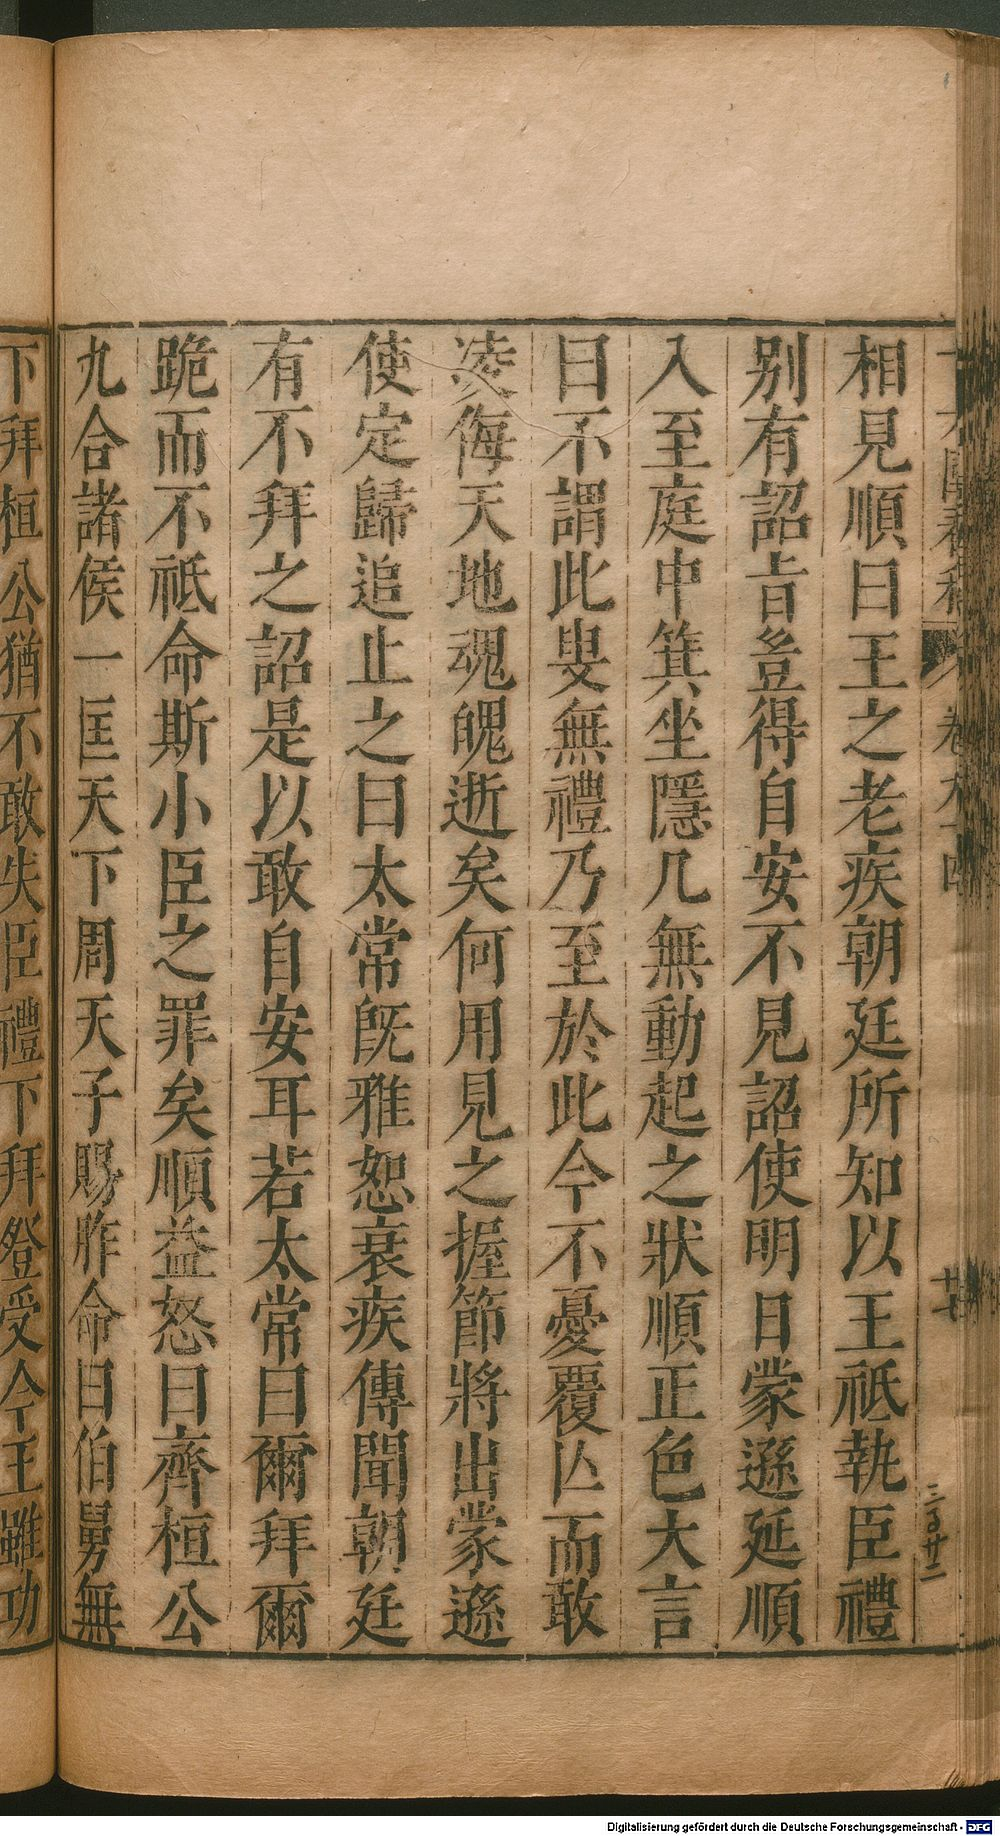 相見順曰王之老疾朝廷所知以王祗執臣禮
別有詔旨豈得自安不見詔使明日蒙遜延順
入至庭中箕坐隱几無動起之狀順正色大言
曰不謂此叟無禮乃至於此今不憂覆亾而敢
凌侮天地魂魄逝矣何用見之握節將出蒙遜
使定歸追止之曰太常旣雅恕衰疾傳聞朝廷
有不拜之詔是以敢自安耳若太常曰爾拜爾
跪而不祗命斯小臣之罪矣順益怒曰齊桓公
九合諸侯一匡天下周天子賜胙命曰伯舅無
下拜桓公猶不敢失臣禮下拜登受今王雖功
Digitalisierung gefördert durch die Deutsche Forschungsgemeinschaft - DFG